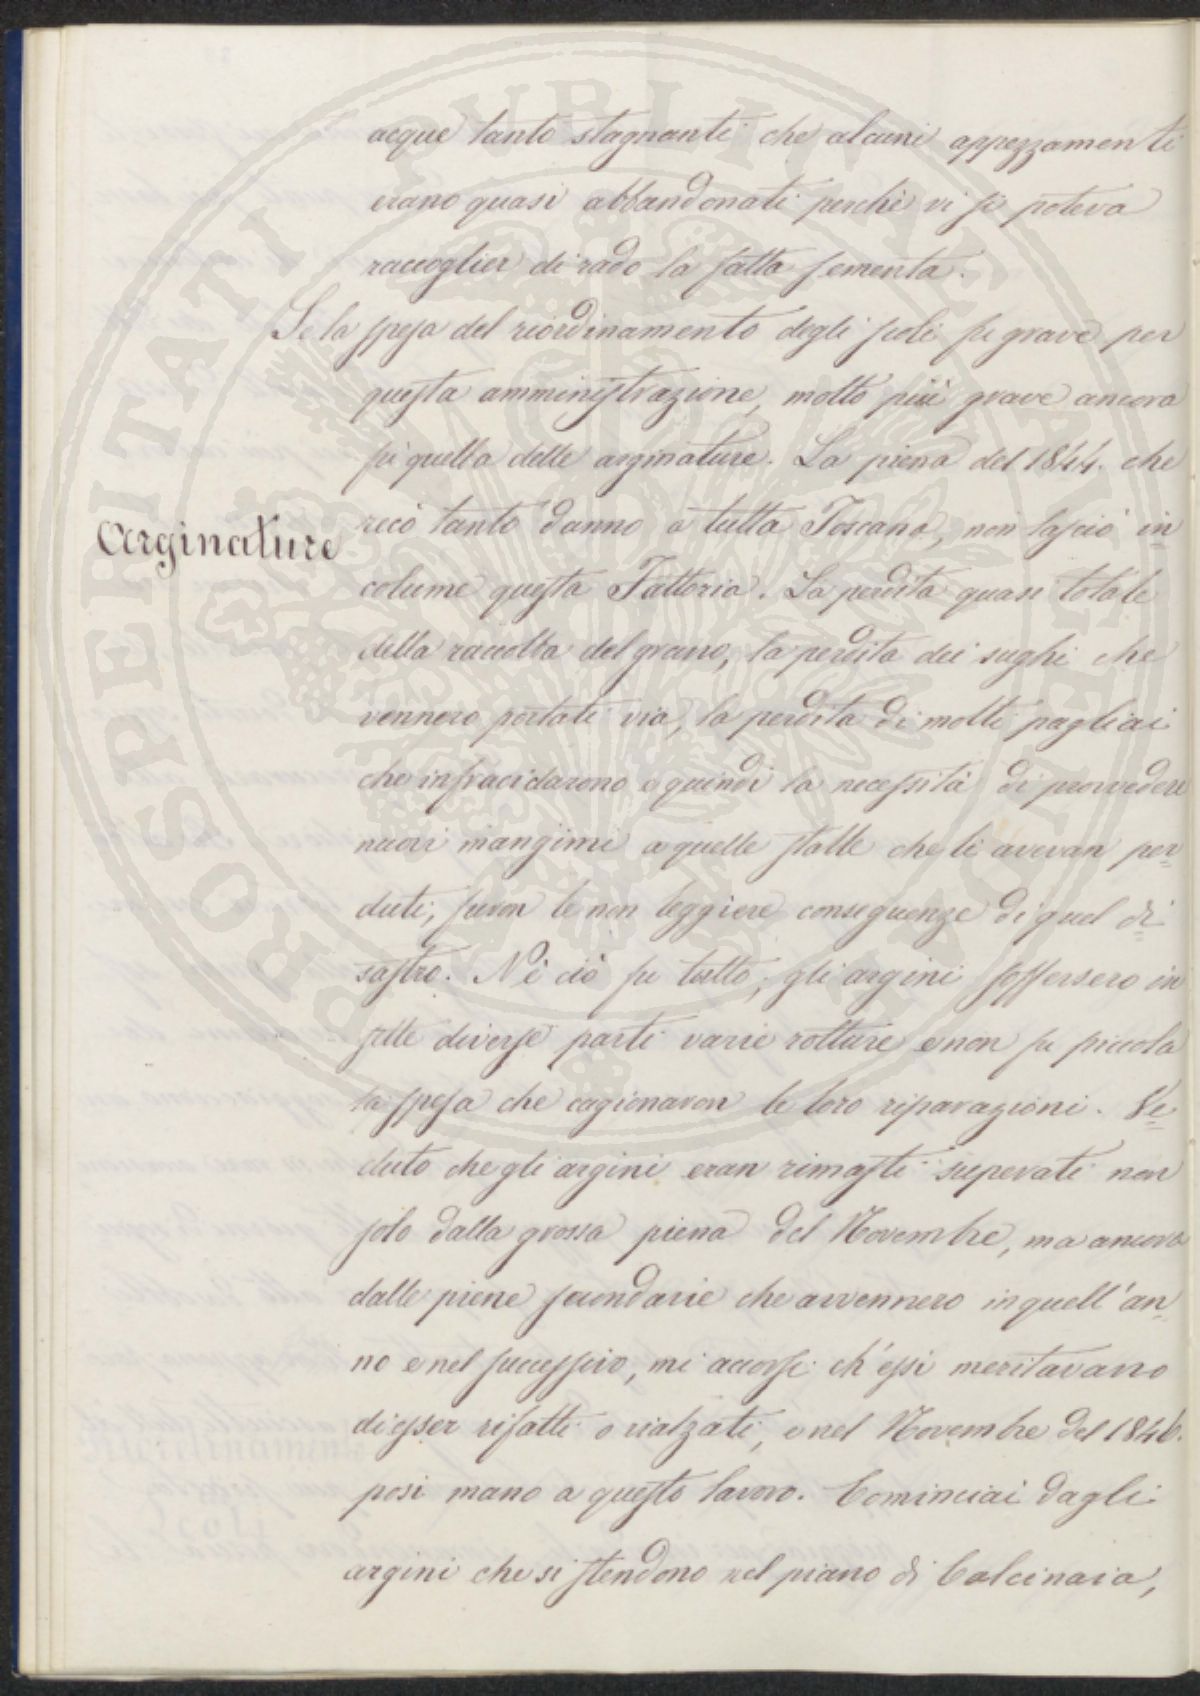 acque tanto stagnanti che alcuni appezzamenti
erano quasi abbandonati perchè vi si poteva
raccoglier di rado la fatta sementa.
Se la spesa del riordinamento degli scoli fu grave per
questa amministrazione, molto più grave ancora
fu quella delle arginature. La piena del 1844. che
Arginature
recò tanto danno a tutta Toscana, non lasciò in
colume questa Fattoria. La perdita quasi totale
della raccolta del grano, la perdita dei sughi che
vennero portati via, la perdita di molti pagliai
che infracidarono e quindi la necessità di provvedere
nuovi mangimi a quelle stalle che li avevan per
duti, furon le non leggiere conseguenze di quel di
sastro. Nè ciò fu tutto; gli argini soffersero in
diverse parti varie rotture e non fu piccola
la spesa che cagionaron le loro riparazioni. Ve
duto che gli argini eran rimasti superati non
solo dalla grossa piena del Novembre, ma ancora
dalle piene secondarie che avvennero in quell'an
no e nel successivo, mi accorsi ch'essi meritavano
di esser rifatti o rialzati, e nel Novembre del 1846.
posi mano a questo lavoro. Cominciai dagli
argini che si stendono nel piano di Calcinaia,
PROSPERITATI PVBLICAE AVGENDAE